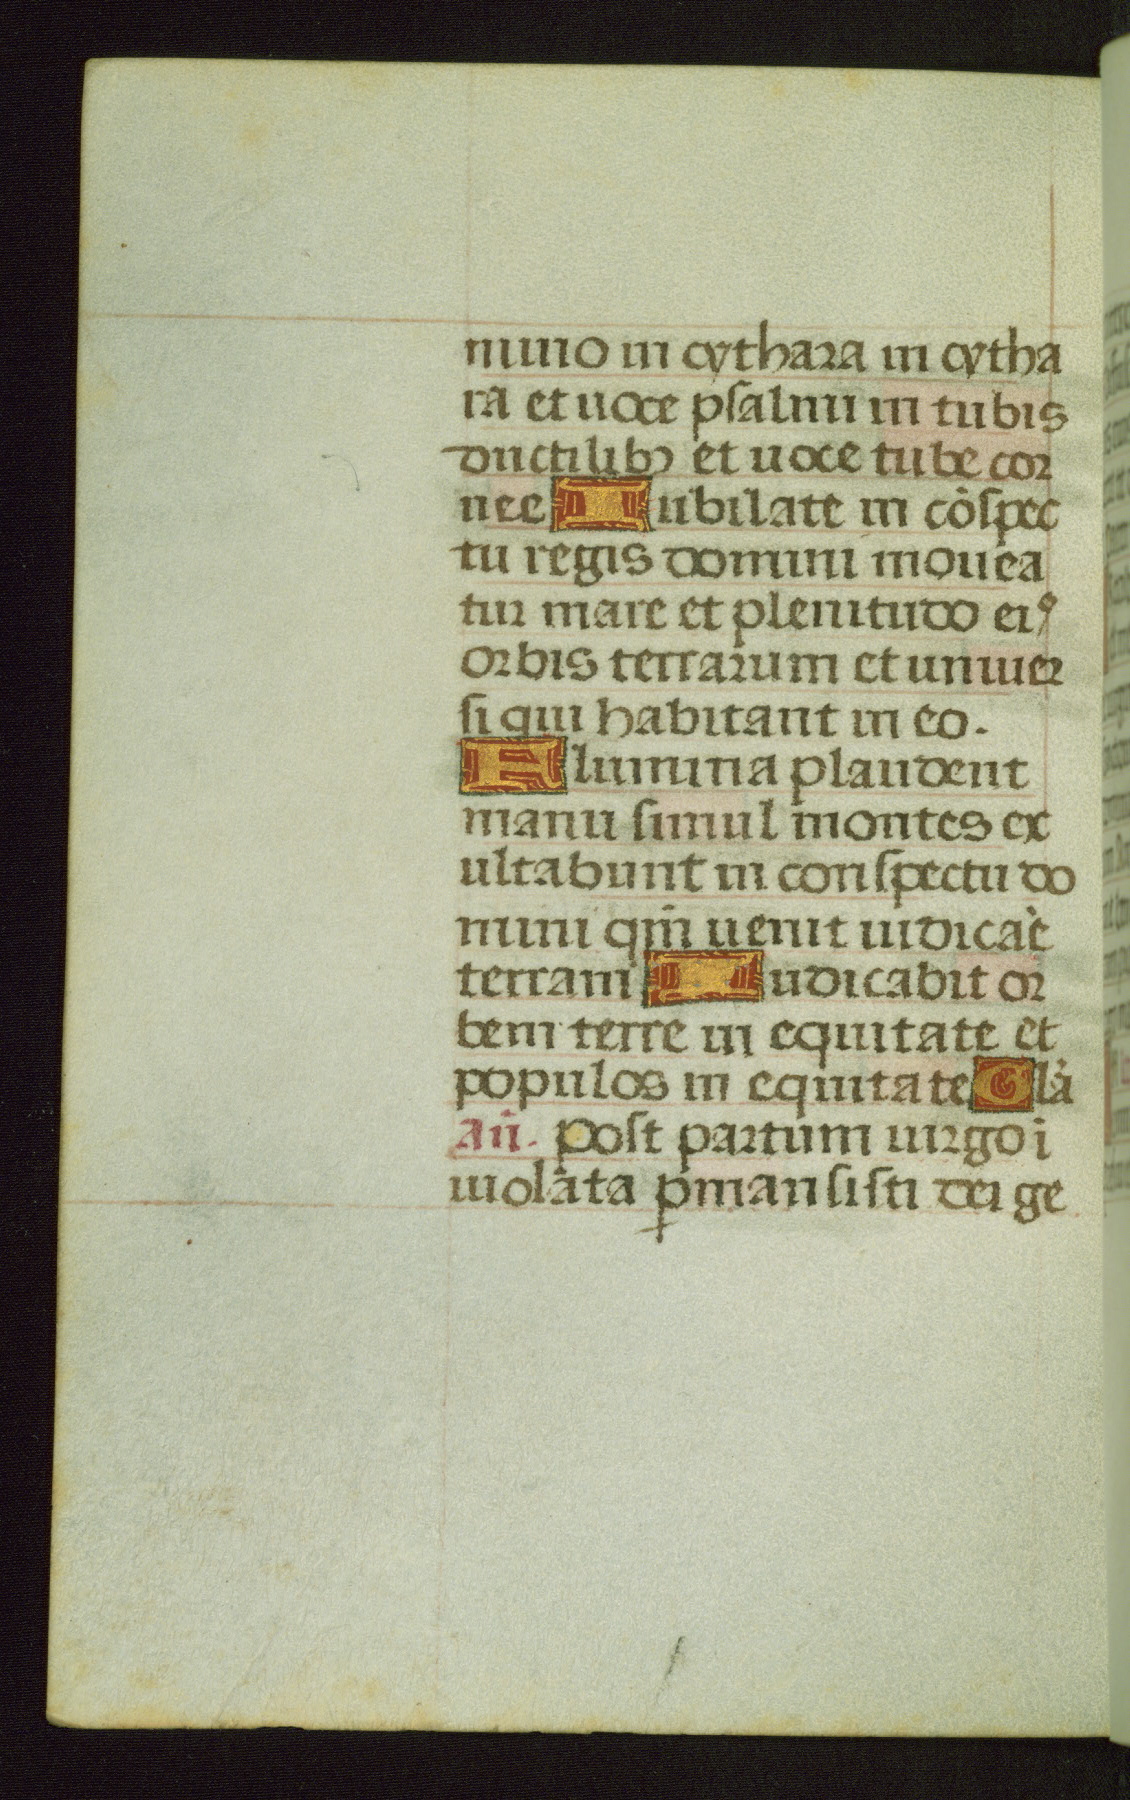 mino in cythara in cytha
ra et uoce psalmi in tubis
ductilibꝫ et uoce tube cor
nee Iubilate in cōspec
tu regis domini mouea
tur mare et plenitudo eiꝰ
orbis terrarum et uniuer
si qui habitant in eo.
Flumina plaudent
manu simul montes ex
ultabunt in conspectu do
mini qm̄ uenit iudicar̄e
terram Iudicabit or
bem terre in equitate et
populos in equitate Glā
An̄. Post partum uirgo i
uiolata ꝑmansisti dei ge